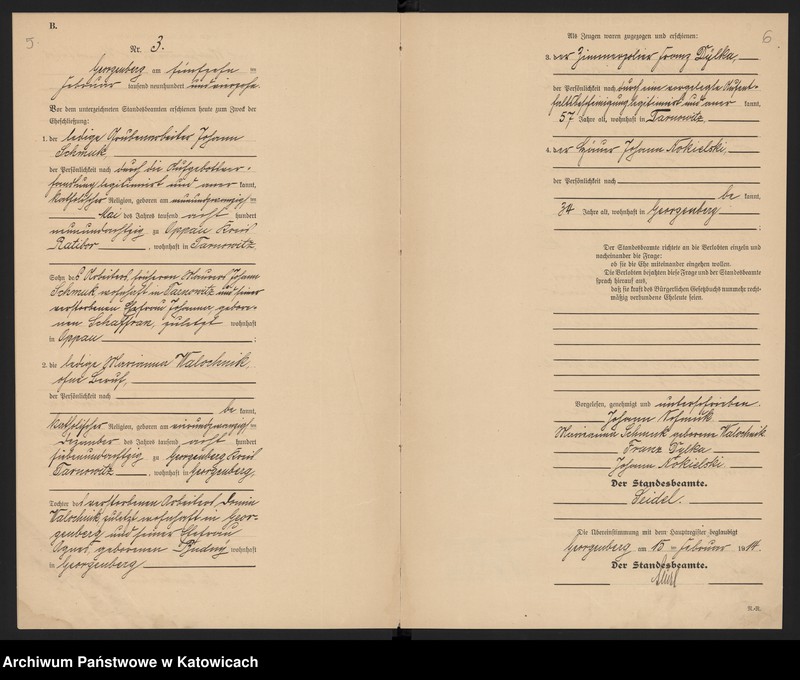 B.
5
Nr. 3.
Georgenberg am fünfzehn ten
Februar tausend neunhundert und vierzehn
Vor dem unterzeichneten Standesbeamten erschienen heute zum Zweck der
Eheschließung:
1. der ledige Grubenarbeiter Johann
Schmuk,
der Persönlichkeit nach durch die Aufgebotsver-
handlung legitimiert und aner kannt,
katholischer Religion, geboren am neunundzwanzig ten
Mai des Jahres tausend acht hundert
neunundachtzig zu Oppau Kreis
Ratibor, wohnhaft in Tarnowitz
Sohn des Arbeiters, früheren Maurers Johann
Schmuk wohnhaft in Tarnowitz und seiner
verstorbenen Ehefrau Johanna, gebore-
nen Schaffran, zuletzt wohnhaft
in Oppau;
2. die ledige Marianna Walochnik,
ohne Beruf,
der Persönlichkeit nach
be kannt,
katholischer Religion, geboren am vierundzwanzig ten
Dezember des Jahres tausend acht hundert
siebenundachtzig zu Georgenberg Kreis
Tarnowitz, wohnhaft in Georgenberg,
Tochter des verstorbenen Arbeiters
Walochnik, zuletzt wohnhaft in Geor-
genberg und seiner Ehefrau
Agnes, geborenen wohnhaft
in Georgenberg
6
Als Zeugen waren zugezogen und erschienen:
3. der Zimmerpolier Franz Dylka,
der Persönlichkeit nach durch eine vorgelegte Aufent-
haltsbescheinigung legitimiert und aner kannt,
57 Jahre alt, wohnhaft in Tarnowitz,
4. der Häuer Johann Nokielski,
der Persönlichkeit nach
be kannt,
34 Jahre alt, wohnhaft in Georgenberg;
Der Standesbeamte richtete an die Verlobten einzeln und
nacheinander die Frage:
ob sie die Ehe miteinander eingehen wollen.
Die Verlobten bejahten diese Frage und der Standesbeamte
sprach hierauf aus,
daß sie kraft des Bürgerlichen Gesetzbuchs nunmehr recht-
mäßig verbundene Eheleute seien.
Vorgelesen, genehmigt und unterschrieben.
Johann Schmuk
Marianna Schmuk geborene Walochnik
Franz Dylka
Johann Nokielski.
Der Standesbeamte.
Seidel.
Die Übereinstimmung mit dem Hauptregister beglaubigt
Georgenberg, am 15 ten Februar 1914.
Der Standesbeamte.
Archiwum Państwowe w Katowicach